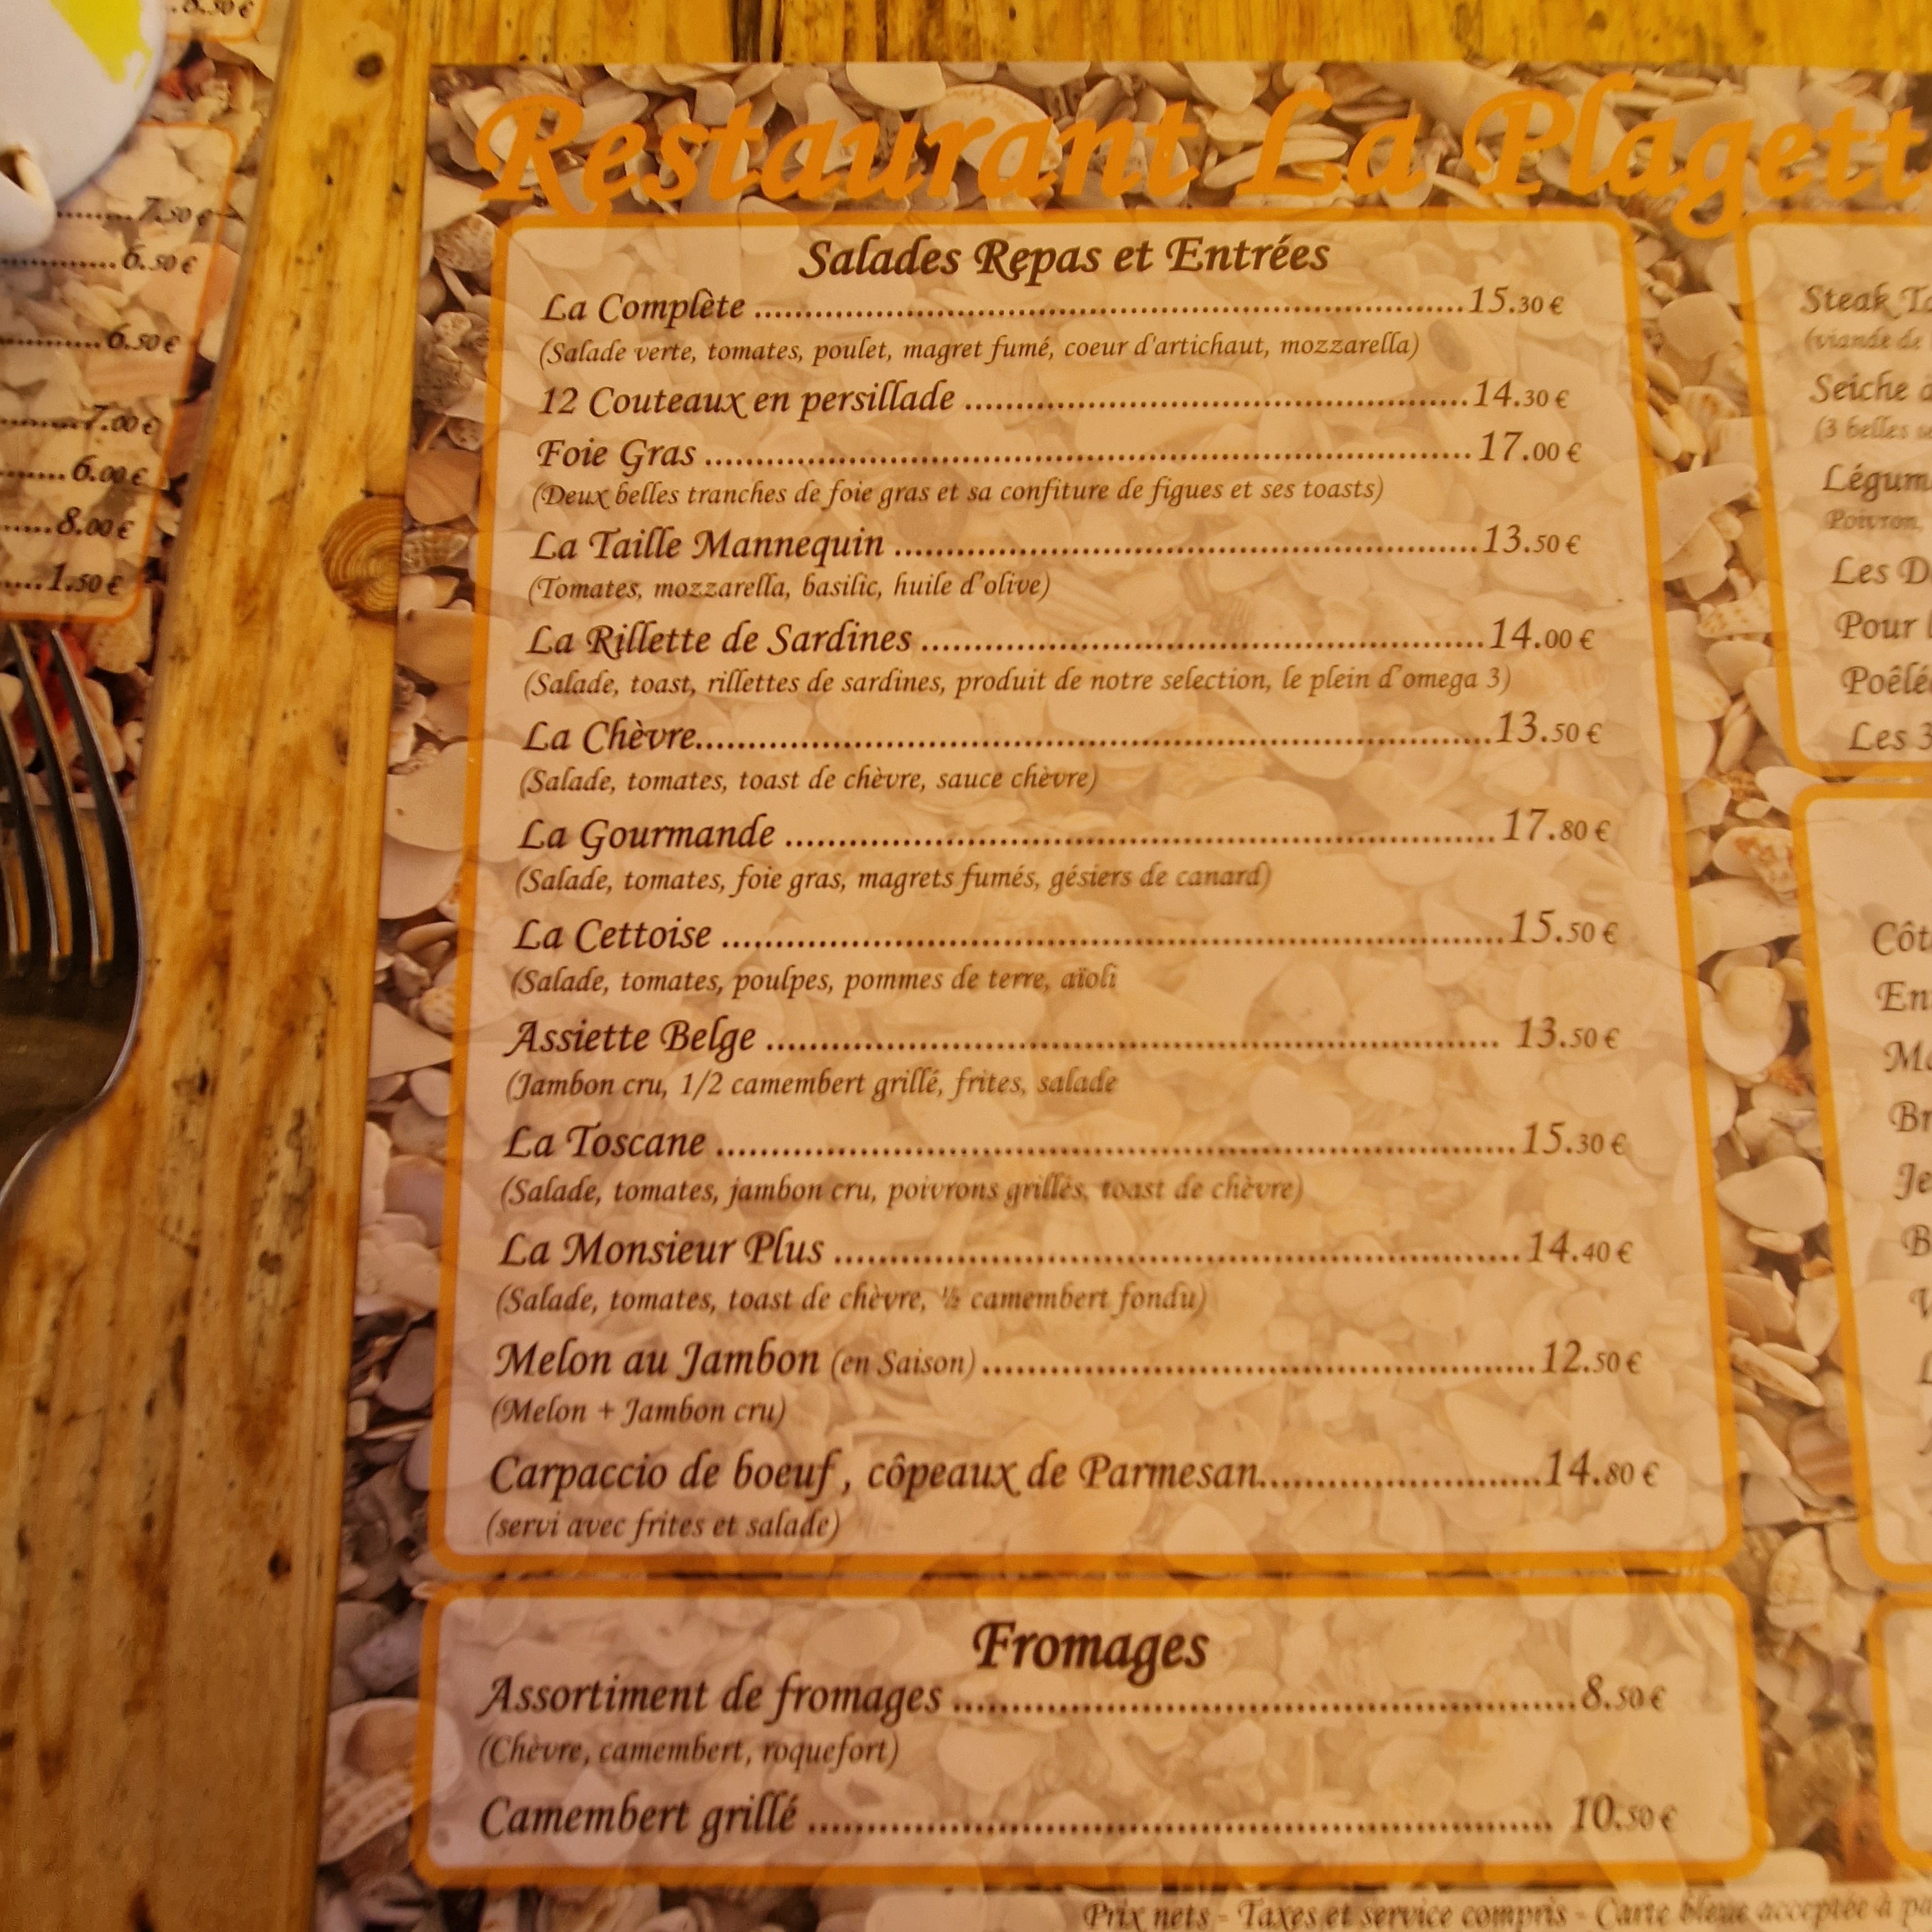 7.50 €
6.50 €
6.50 €
7.00 €
6.00 €
8.00 €
1.50 €
Restaurant La Plagett
Salades Repas et Entrées
La Complète ........ 15.30 €
(Salade verte, tomates, poulet, magret fumé, coeur d'artichaut, mozzarella)
12 Couteaux en persillade ........ 14.30 €
Foie Gras ........ 17.00 €
(Deux belles tranches de foie gras et sa confiture de figues et ses toasts)
La Taille Mannequin ........ 13.50 €
(Tomates, mozzarella, basilic, huile d'olive)
La Rillette de Sardines ........ 14.00 €
(Salade, toast, rillettes de sardines, produit de notre selection, le plein d'omega 3)
La Chèvre ........ 13.50 €
(Salade, tomates, toast de chèvre, sauce chèvre)
La Gourmande ........ 17.80 €
(Salade, tomates, foie gras, magrets fumés, gésiers de canard)
La Cettoise ........ 15.50 €
(Salade, tomates, poulpes, pommes de terre, aïoli
Assiette Belge ........ 13.50 €
(Jambon cru, 1/2 camembert grillé, frites, salade
La Toscane ........ 15.30 €
(Salade, tomates, jambon cru, poivrons grillés, toast de chèvre)
La Monsieur Plus ........ 14.40 €
(Salade, tomates, toast de chèvre, ½ camembert fondu)
Melon au Jambon (en Saison) ........ 12.50 €
(Melon + Jambon cru)
Carpaccio de boeuf , côpeaux de Parmesan ........ 14.80 €
(servi avec frites et salade)
Fromages
Assortiment de fromages ........ 8.50 €
(Chèvre, camembert, roquefort)
Camembert grillé ........ 10.50 €
Prix nets - Taxes et service compris - Carte bleue acceptée à
Steak
(viande de
Seiche
(3 belles
Poivron
Les
Pour
Les 3